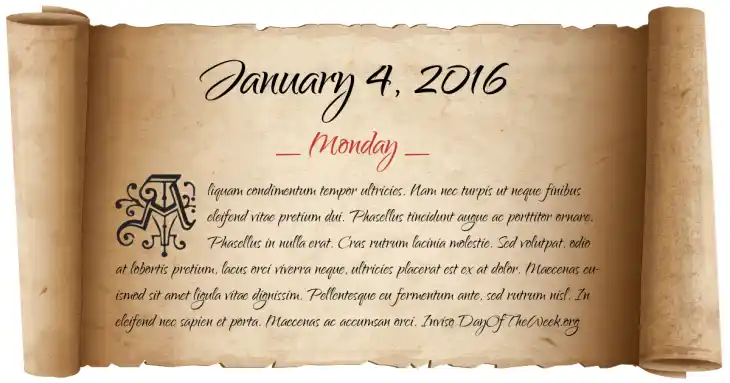 January 4, 2016
_ Monday _
Aliquam condimentum tempor ultricies. Nam nec turpis ut neque finibus
eleifend vitae pretium dui. Phasellus tincidunt augue ac porttitor ornare.
Phasellus in nulla erat. Cras rutrum lacinia molestie. Sed volutpat, odio
at lobortis pretium, lacus orci viverra neque, ultricies placerat est ex at dolor. Maecenas eu-
ismod sit amet ligula vitae dignissim. Pellentesque eu fermentum ante, sed rutrum nisl. In
eleifend nec sapien et porta. Maecenas ac accumsan orci. Inviso DayOfTheWeek.org